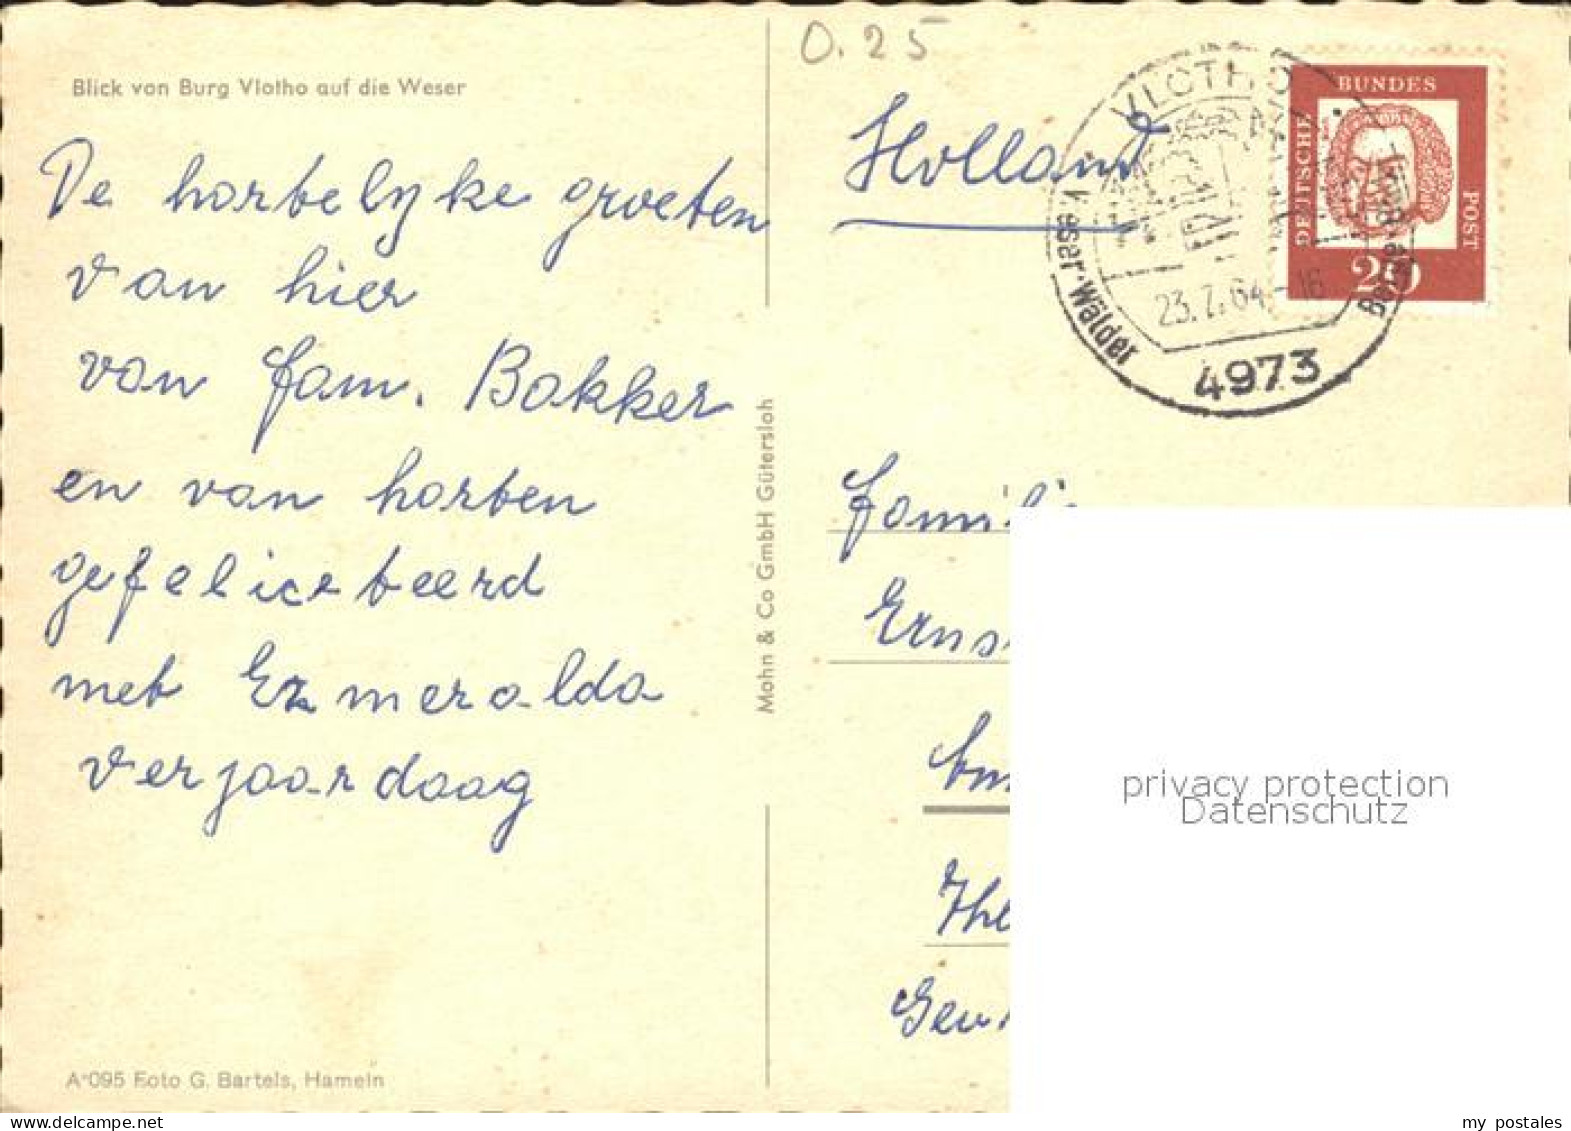 0.25
Blick von Burg Vlotho auf die Weser
De hartelyke groeten
van hier
van fam. Bakker
en van harten
gefeliceteerd
met Ezmeralda
verjaardaag
A 095 Foto G. Bartels, Hameln
Mohn & Co GmbH Gütersloh
Holland
VLOTHO
Weser-Wälder
23.7.64-16
4973
BUNDES
DEUTSCHE
POST
20
Famili
Erns
Am
The
Gen
privacy protection
Datenschutz
my postales